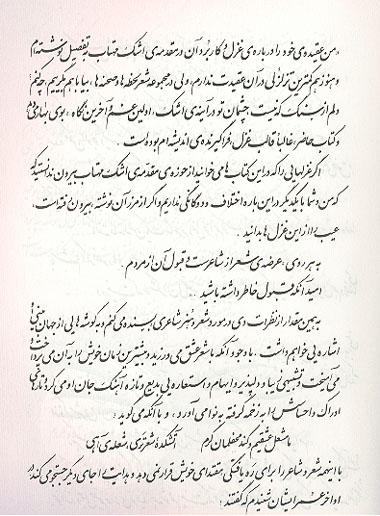 «من عقیده‌ی خود را درباره‌ی غزل و کاربرد آن در مقدمه‌ی اشک مهتاب به تفصیل نوشته‌ام
و هنوز هم کمترین تزلزلی در آن عقیدت ندارم، ولی در مجموعه شعر لحظه‌ها و صحنه‌ها، بیا با هم بگرییم، چه کنم
دلم از سنگ که نیست، چشمان تو در آینه‌ی اشک، اولین غم و آخرین نگاه
و کتاب حاضر، غالباً قالب غزل، فراگیرنده‌ی اندیشه‌ام بوده است.
اگر غزلهایی را که در این کتاب‌ها می‌خوانید از حوزه‌ی مقدمه‌ی اشک مهتاب بیرون ندانستید که
من و شما با یکدیگر در این باره اختلاف و دوگانگی نداریم و اگر از مرز آن نوشته، بیرون رفته است،
عیب را از این غزل‌ها بدانید.
به هر روی، عرضه‌ی شعر از شاعر است و قبول آن از مردم.
امید آنکه قبول خاطر داشته باشید...»
به همین مقدار از نظرات وی در مورد شعر و هنر شاعری بسنده می‌کنم و به گوشه‌هایی از جهان‌بینی او
اشاره‌یی خواهم داشت. با وجود آنکه با شعر عشق می‌ورزید و بیشترین زمان خویش را به آن می‌پرداخت و
می‌آمیخت و تشبیهی زیبا و دلپذیر و ایهام و استعاره‌یی بدیع و تازه آهنگ جان او می‌کرد و تارهای
ادراک و احساسش را به زخمه گرفته به نوا می‌آورد، و با آنکه می‌گوید:
ما شعل عشقیم که در محفلمان گرم آتشکده‌ی شعر تری، شعله‌ی آهی
با اینهمه شعر و شاعر را برای ره یافتگی مقتدای خویش قرار نمی‌دهد و هدایت را جای دیگر جستجو می‌کند.
اواخر عمر ایشان شنیدم که گفتند: